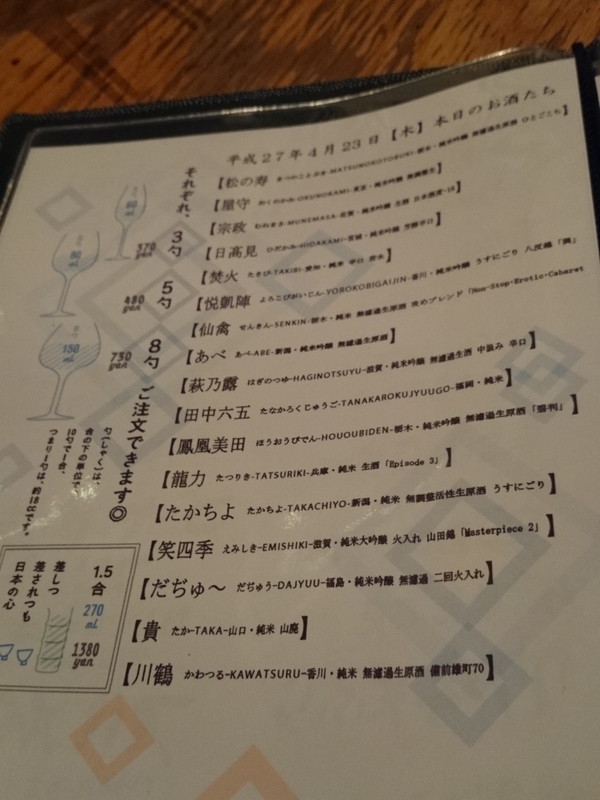 平成27年4月23日【木】本日のお酒たち
【松の寿 まつのことぶき-MATSUNOKOTOBUKI-栃木・純米吟醸 無濾過生原酒 ひとごこち】
【屋守 おくのかみ-OKUNOKAMI-東京・純米吟醸 無調整生】
【宗政 むねまさ-MUNEMASA-佐賀・純米吟醸 生酒 日本酒度-15】
【日髙見 ひだかみ-HIDAKAMI-宮城・純米吟醸 芳醇辛口】
【焚火 たきび-TAKIBI-愛知・純米 辛口
【悦凱陣 よろこびがいじん-YOROKOBIGAIJIN-香川・純米吟醸 うすにごり 八反錦
【仙禽 せんきん-SENKIN-栃木・純米 無濾過生原酒 攻めブレンド「Non-Stop-Erotic-Cabaret
【あべ あべ-ABE-新潟・純米吟醸 無濾過生原酒】
【萩乃露 はぎのつゆ-HAGINOTSUYU-滋賀・純米吟醸 無濾過生酒 中汲み 辛口】
【田中六五 たなかろくじゅうご-TANAKAROKUJYUUGO-福岡・純米】
【鳳凰美田 ほうおうびでん-HOUOUBIDEN-栃木・純米吟醸 無濾過生原酒「碧判」】
【龍力 たつりき-TATSURIKI-兵庫・純米 生酒「Episode 3」】
【たかちよ たかちよ-TAKACHIYO-新潟・純米 無調整活性生原酒 うすにごり】
【笑四季 えみしき-EMISHIKI-滋賀・純米大吟醸 火入れ 山田錦「Masterpiece 2」】
【だぢゅ〜 だぢゅう-DAJYUU-福島・純米吟醸 無濾過 二回火入れ】
【貴 たか-TAKA-山口・純米 山廃】
【川鶴 かわつる-KAWATSURU-香川・純米 無濾過生原酒 備前雄町70】
それぞれ、3勺 5勺 8勺 ご注文できます◎
60 ml
370 yen
90 ml
480 yen
150 ml
730 yen
勺(しゃく)は、
合の下の単位で
10勺で1合、
つまり1勺は、約18ccです。
1.5合
270 ml
1380 yen
差しつ
差されつも
日本の心